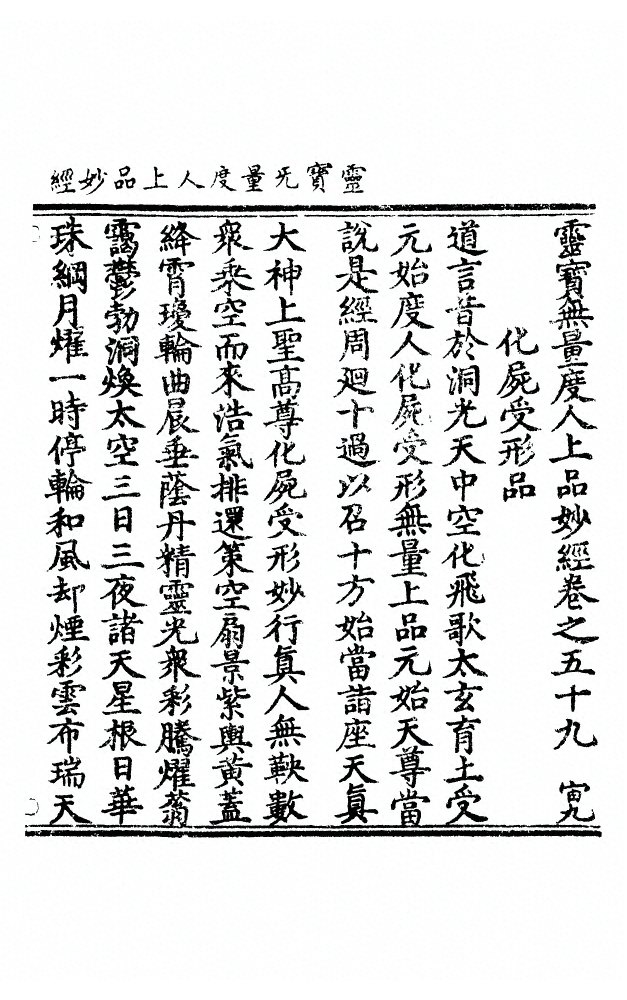 靈寶旡量度人上品妙經
靈寶無量度人上品妙經卷之五十九 寅九
化屍受形品
道言昔於洞光天中空化飛歌太玄育上受
元始度人化屍受形無量上品元始天尊當
說是經周廻十過以召十方始當詣座天真
大神上聖高尊化屍受形妙行真人無鞅數
衆乘空而來浩氣排還策空扇景紫輿黃蓋
絳霄瓊輪曲晨垂蔭丹精靈光衆彩騰燿蓊
靄鬱勃洞煥太空三日三夜諸天星根日華
珠綱月燿一時停輪和風却煙彩雲布瑞天